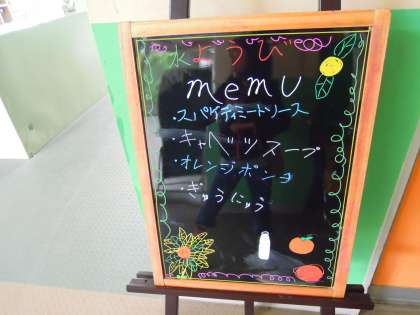 水ようび
memu
・スパイティミートソース
・キャベツスープ
・オレンジポンヨ
・ぎゅうにゅう